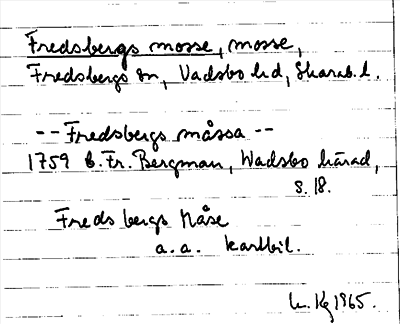 Fredsbergs mosse, mosse,
Fredsbergs sn, Vadsbo hd, Skarab. l.
-- Fredsbergs måssa --
1759 B. Fr. Bergman, Wadsbo härad,
s. 18.
Fredsbergs Måse
a.a. kartbil.
Kg 1965.